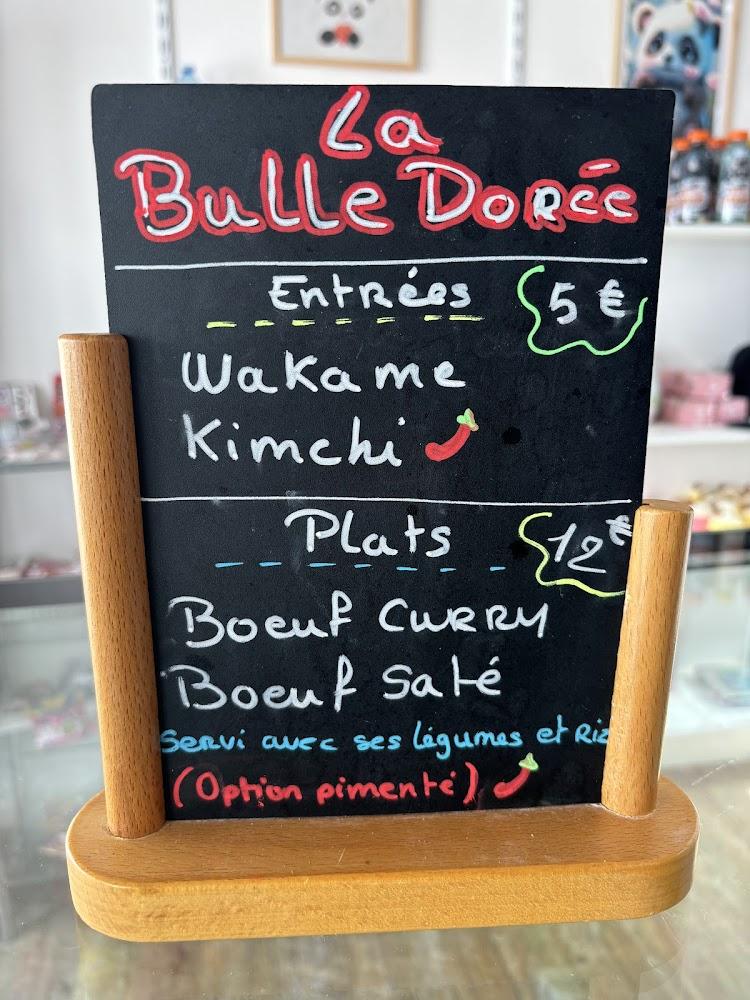 La
Bulle Dorée
Entrées 5 €
Wakame
Kimchi
Plats 12 €
Boeuf Curry
Boeuf Saté
Servi avec ses légumes et Riz
(Option pimenté)